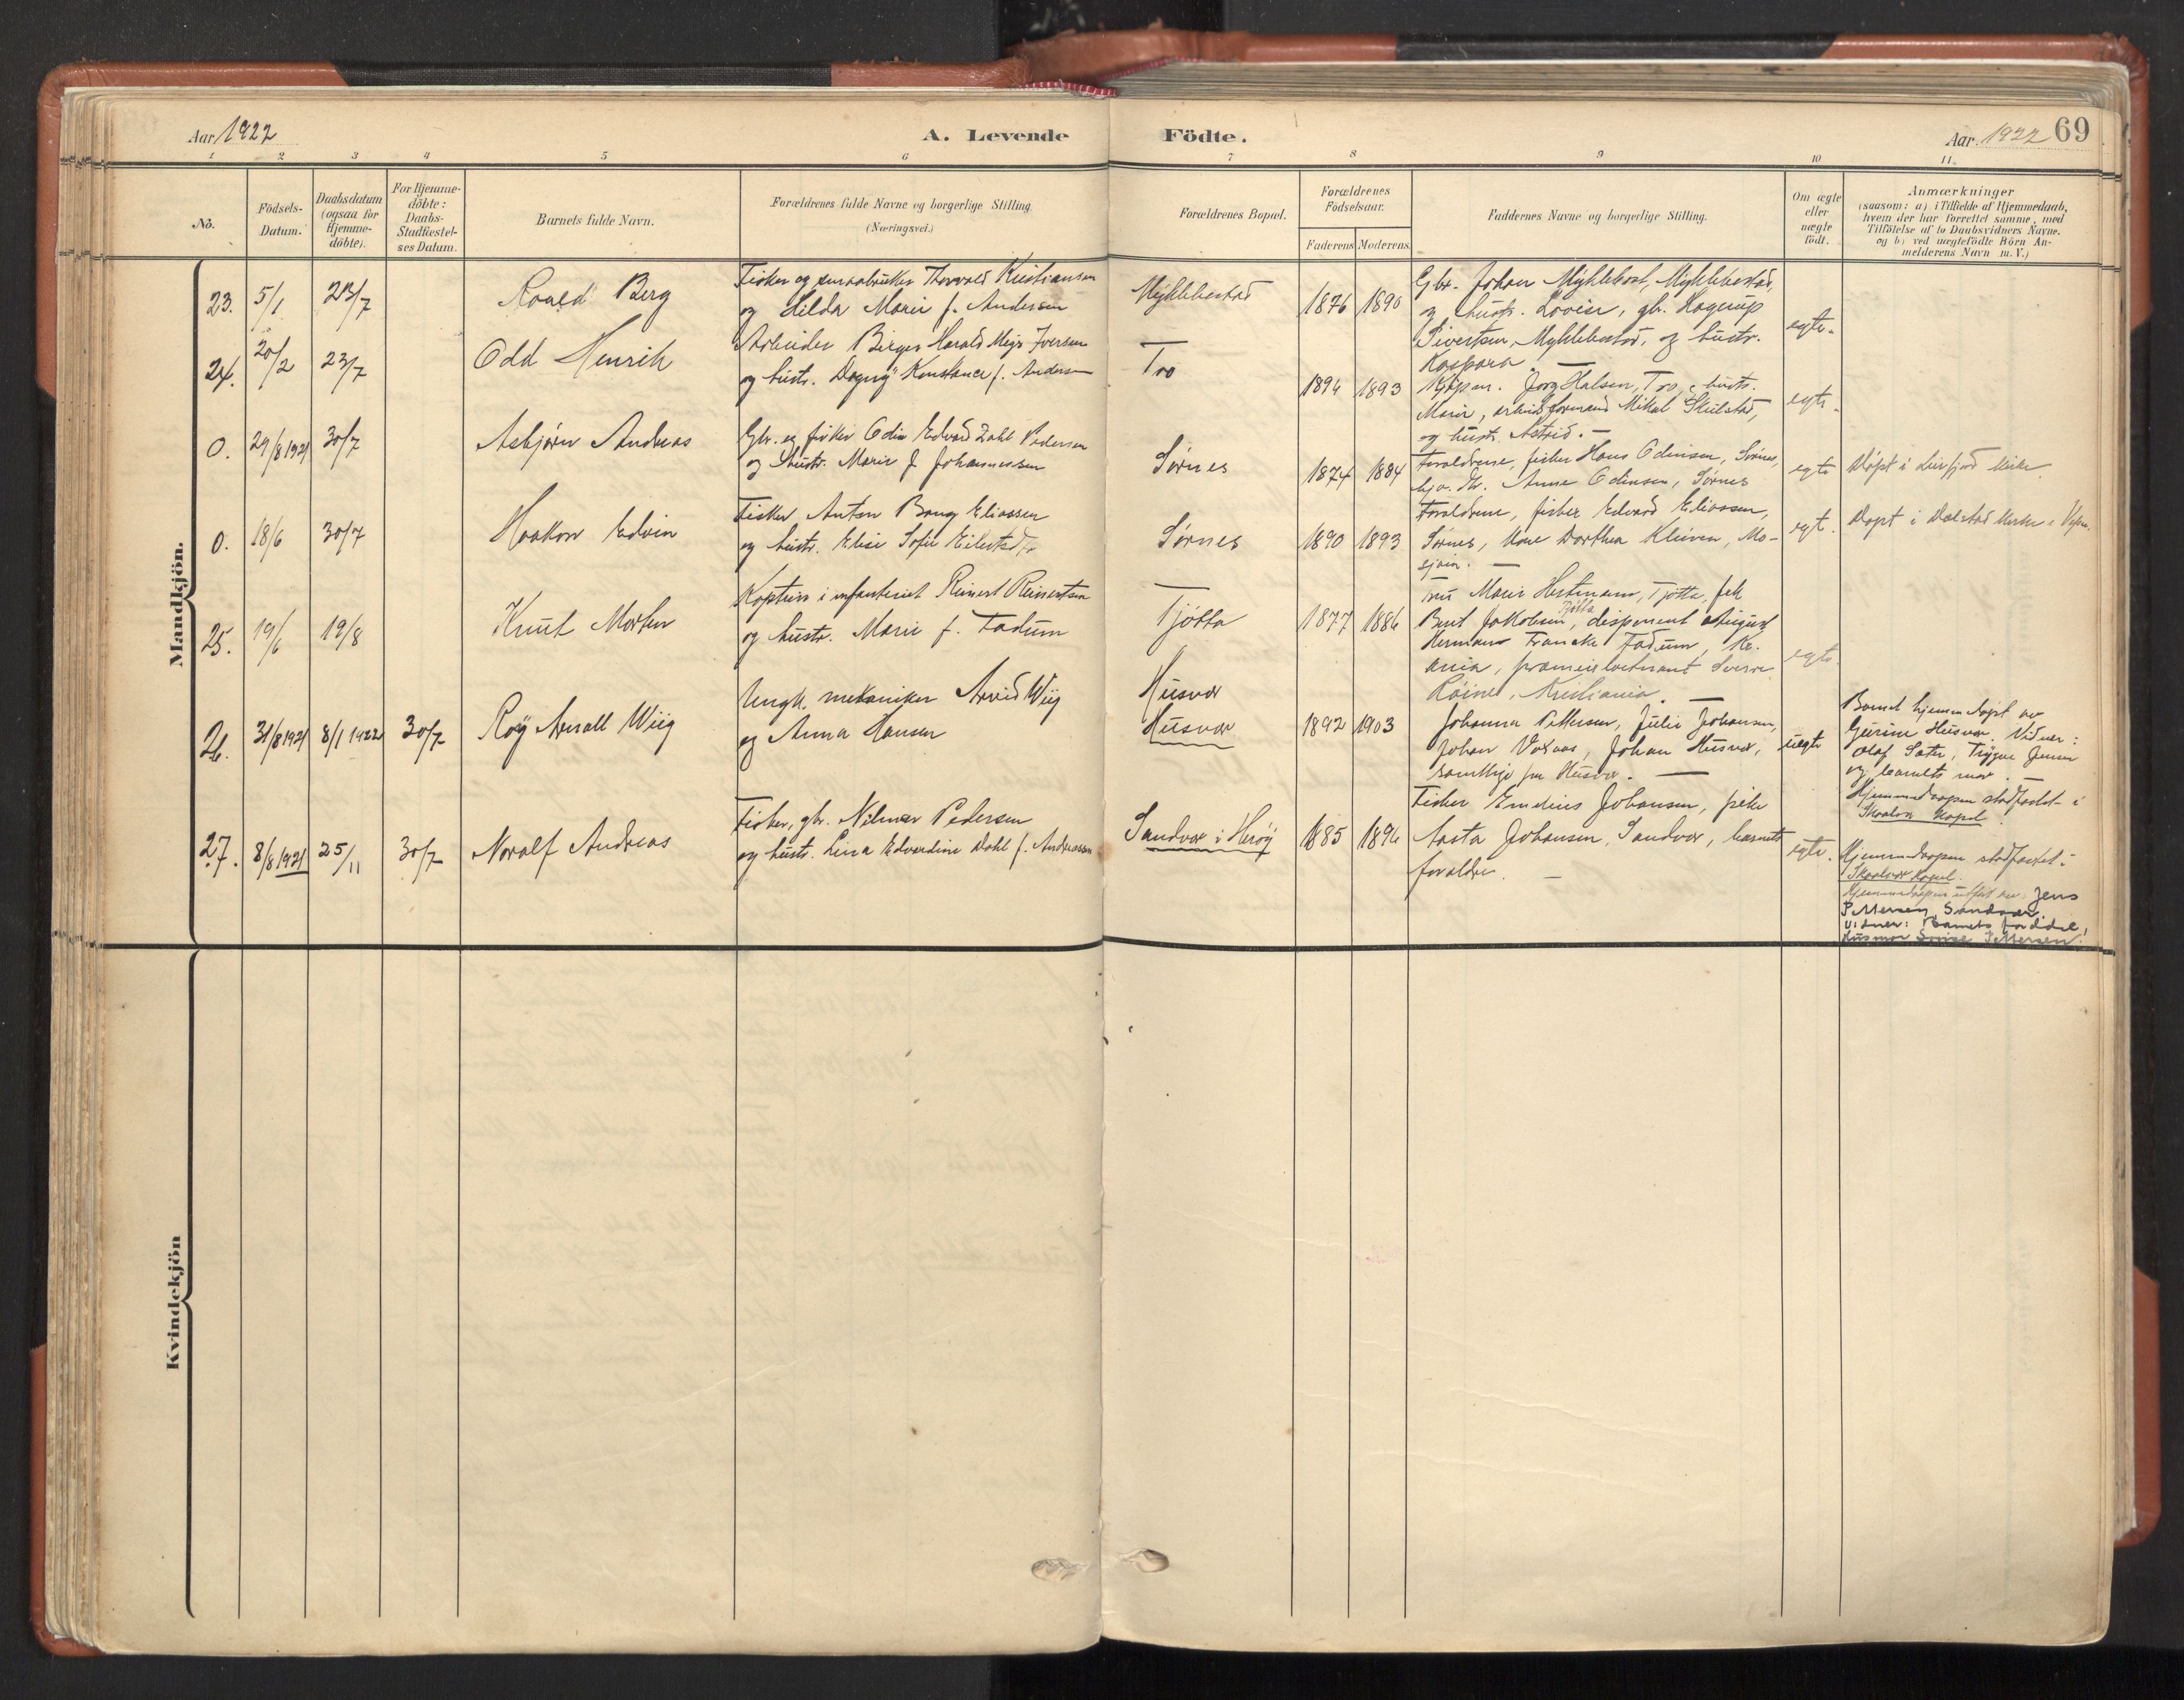 Aar 1922
A. Levende
Födte.
Aar. 1922
69
1 2 3 4 5 6 7 8 9 10 11
No.
Födsels-
Datum.
Daabsdatum
(ogsaa for
Hjemme-
döbte).
For Hjemme-
döbte:
Daabs-
Stadfæstel-
ses Datum.
Barnets fulde Navn.
Forældrenes fulde Navne og borgerlige Stilling.
(Næringsvei.)
Forældrenes Bopæl.
Forældrenes
Födselsaar.
Faderens Moderens
Faddernes Navne og borgerlige Stilling.
Om ægte
eller
uægte
födt.
Anmærkninger
(saasom: a) i Tilfælde af Hjemmedaab,
hvem der har forrettet samme, med
Tilföielse af to Daabsvidners Navne.
og b) ved uægtefödte Börn An-
melderens Navn m. V.)
Mandkjön.
23. 5/1 23/7
Roald Berg
Fisker og Thorvald Kristiansen
og Hilda Marie f. Andersen
Myklebostad
1876 1890
Gbr. Johan Myklebost, Myklebostad,
og hustr. Lovise, gb. Hagerup
Sivertsen, Myklebostad, og hustr.
Kaspara —
egte.
24. 20/2 23/7
Odd Henrik
Arbeider Birger Harald Iversen
og hustr. Dagny Konstance f. Andersen
Tro
1894 1893
Kjöpm. Halsen, Tro, hustr.
Marie, arbeidsformand Mikal
og hustr. Astrid. —
egte.
0. 29/8 1921 30/7
Asbjørn Andreas
Gbr. og fisker Odin Edvard Dahl Pedersen
og hustr. Marie f. Johannessen
Sørnes
1874 1884
Forældrene, fisker Hans Odinsen, Sørnes,
Anna Odinsen, Sørnes
egte
Døpt i Leirfjord kirke
0. 18/6 30/7
Haakon Edvin
Fisker Anton Eliassen
og hustr. Elise Sofie
Sørnes
1890 1893
Forældrene, fisker Edvard Eliassen,
Sørnes, Dorthea Kleiven, Mo-
sjøen. —
egt.
Døpt i Dolstad kirke i Vefsn.
25. 19/6 19/8
Knut Morten
Kaptein i infanteriet Reinert Reinertsen
og hustr. Marie f. Fadum
Tjötta
1877 1886
Fru Marie Hertmann, Tjøtta, frk
Berit Jakobsen, Tjötta, disponent August
Hermann Francke Fadum, Kr.
ania, premierløitnant Sverre
Kristiania. —
egte.
26. 31/8 1921 8/1 1922 30/7
Roy Arnalt Wiig
Ungk. mekaniker Arvid Wiig
og Anna Hansen
Husvær
Husvær
1892 1903
Johanna Pettersen, Julie Johansen,
Johan Johan Husvær,
samtlige fra Husvær. —
uegte
Barnet hjemmedøpt av
Gurine Husvær. Vidner:
Olaf Sæter, Trygve Jensen
og barnets mor. —
Hjemmedaapen stadfæstet i
Skaalvær Kapel.
27. 8/8 1921 25/11 30/7
Noralf Andreas
Fisker, gbr. Nilmar Pedersen
og hustr. Lina Edvardine Dahl f. Andreassen
Sandvær i Herøy
1885 1896
Fisker Emelius Johansen, pike
Aasta Johansen, Sandvær, barnets
forældre. —
egte.
Hjemmedaapen stadfæstet i
Skaalvær Kapel.
Hjemmedaapen utført av Jens
Pettersen, Sandvær.
Vidner: Barnets forældre,
Husmor Pettersen.
Kvindekjön